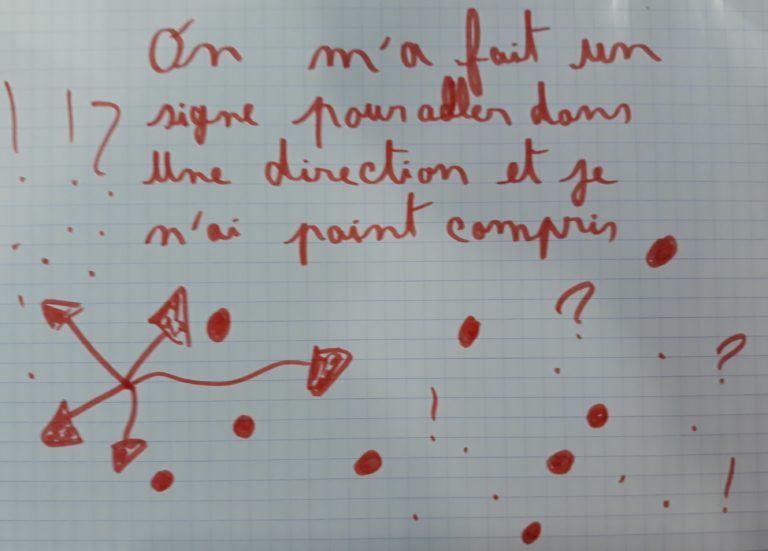 On m'a fait un
!!? signe pour aller dans
une direction et je
n'ai point compris
?
?
!
!